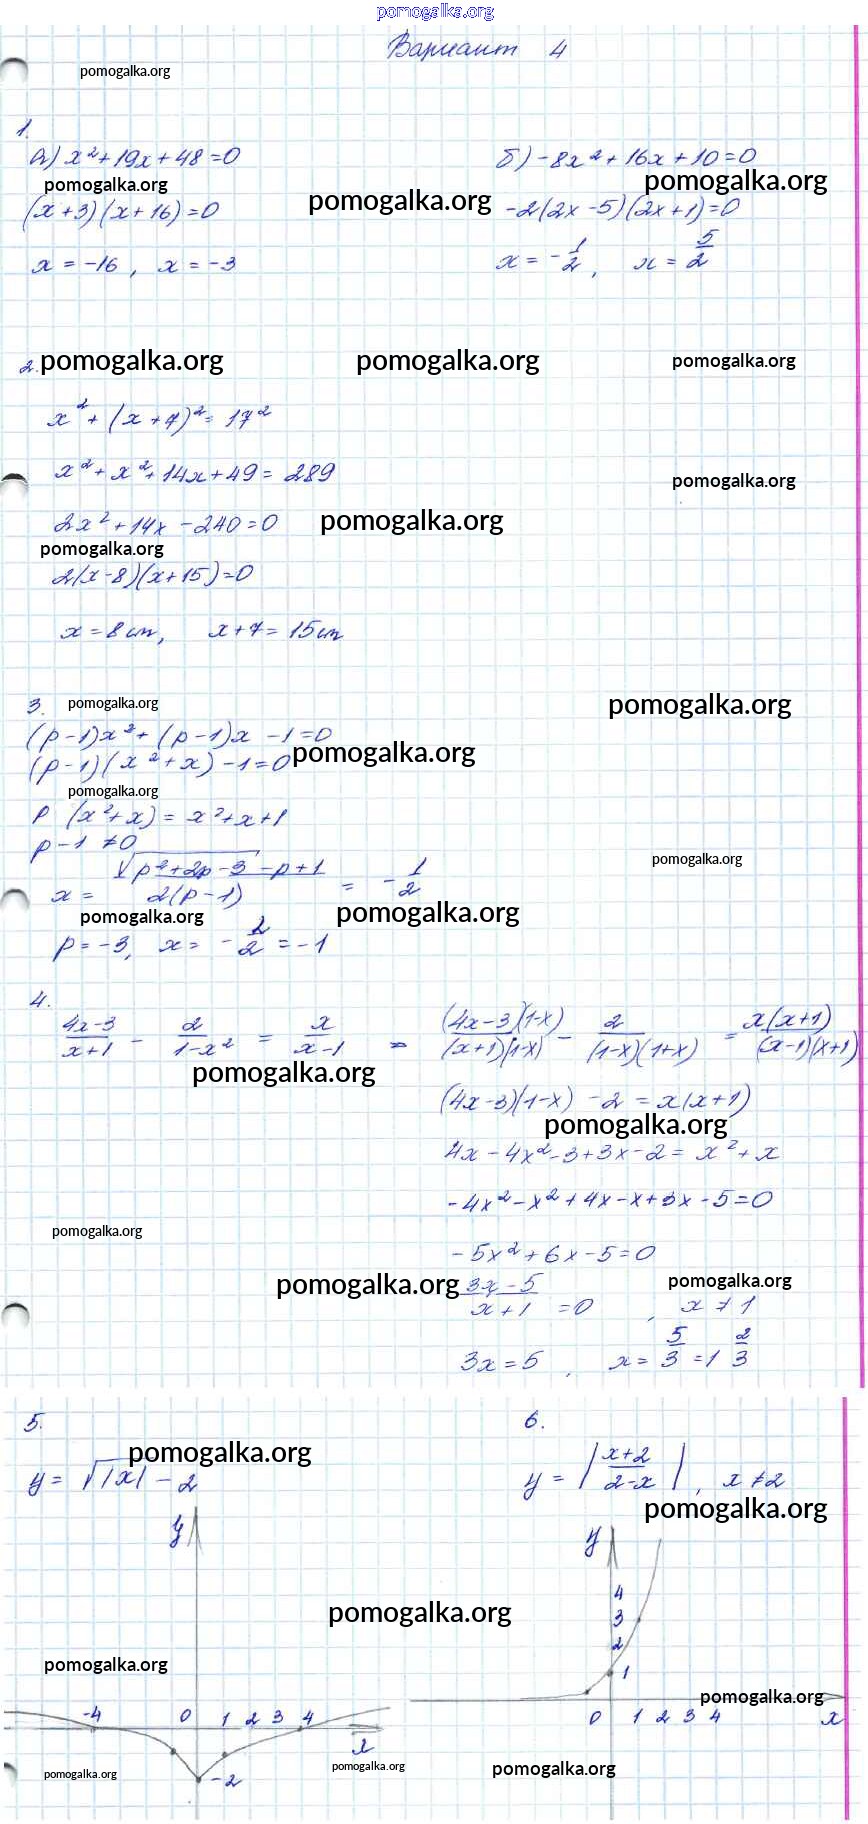 pomogalka.org
Вариант 4
pomogalka.org
1.
а) x² + 19x + 48 = 0
б) -8x² + 16x + 10 = 0
pomogalka.org
pomogalka.org
pomogalka.org
(x+3)(x+16) = 0
-2(2x-5)(2x+1) = 0
x = -16, x = -3
x = -1/2, x = 5/2
2.
pomogalka.org
pomogalka.org
pomogalka.org
x² + (x+7)² = 17²
x² + x² + 14x + 49 = 289
pomogalka.org
2x² + 14x - 240 = 0
pomogalka.org
pomogalka.org
2(x-8)(x+15) = 0
x = 8 см, x+7 = 15 см
3.
pomogalka.org
pomogalka.org
(p-1)x² + (p-1)x - 1 = 0
pomogalka.org
(p-1)(x²+x) - 1 = 0
pomogalka.org
p (x²+x) = x²+x+1
p-1 ≠ 0
pomogalka.org
x = (√(p²+2p-3) - p+1)/(2(p-1)) = -1/2
pomogalka.org
pomogalka.org
p = -3, x = -2/2 = -1
4.
(4x-3)/(x+1) - 2/(1-x²) = x/(x-1) = ((4x-3)(1-x))/((x+1)(1-x)) - 2/((1-x)(1+x)) = (x(x+1))/((x-1)(x+1))
pomogalka.org
(4x-3)(1-x) - 2 = x(x+1)
pomogalka.org
4x - 4x² - 3 + 3x - 2 = x² + x
-4x² - x² + 4x - x + 3x - 5 = 0
pomogalka.org
-5x² + 6x - 5 = 0
pomogalka.org
pomogalka.org
(3x-5)/(x+1) = 0, x ≠ 1
3x = 5, x = 5/3 = 1 2/3
5.
6.
pomogalka.org
y = √|x| - 2
y = |(x+2)/(2-x)|, x ≠ 2
pomogalka.org
y
y
4
3
2
1
pomogalka.org
pomogalka.org
pomogalka.org
-4 0 1 2 3 4
x
0 1 2 3 4 x
-2
pomogalka.org
pomogalka.org
pomogalka.org